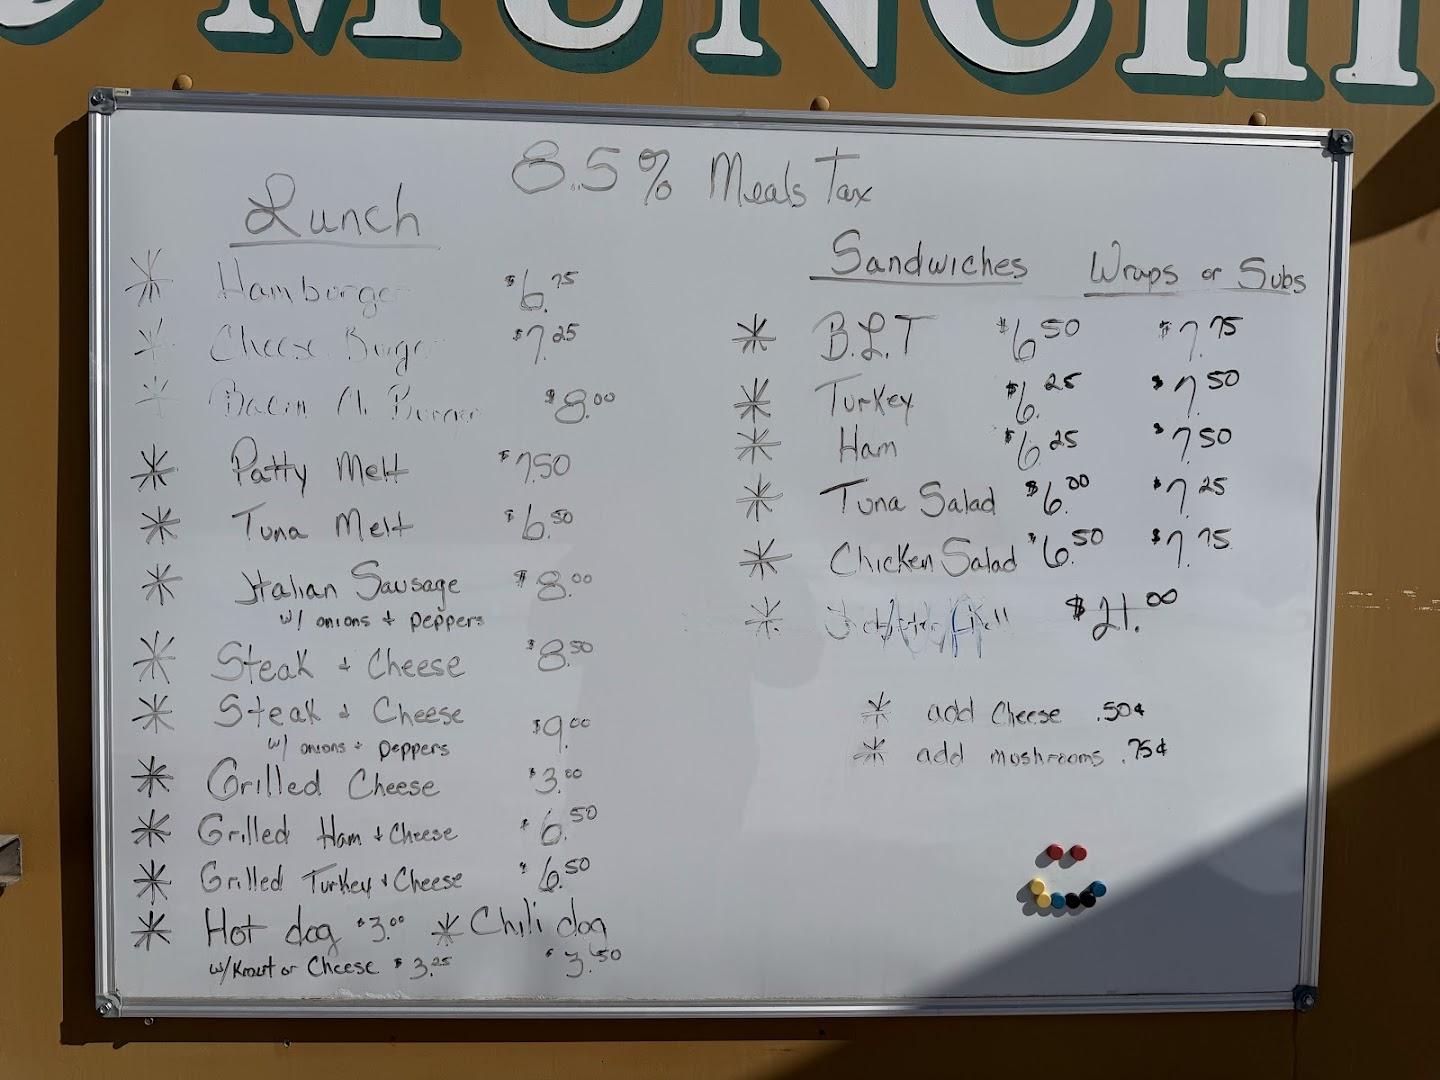 MUNCH
8.5% Meals Tax
Lunch
* Hamburger $6.75
* Cheese Burger $7.25
* Bacon Ch. Burger $8.00
* Patty Melt $7.50
* Tuna Melt $6.50
* Italian Sausage $8.00
w/ onions + peppers
* Steak + Cheese $8.50
* Steak + Cheese
w/ onions + peppers $9.00
* Grilled Cheese $3.00
* Grilled Ham + Cheese $6.50
* Grilled Turkey + Cheese $6.50
* Hot dog $3.00 * Chili dog
w/Kraut or Cheese $3.25 $3.50
Sandwiches Wraps or Subs
* B.L.T $6.50 $7.75
* Turkey $6.25 $7.50
* Ham $6.25 $7.50
* Tuna Salad $6.00 $7.25
* Chicken Salad $6.50 $7.75
* $21.00
* add Cheese .50¢
* add mushrooms .75¢